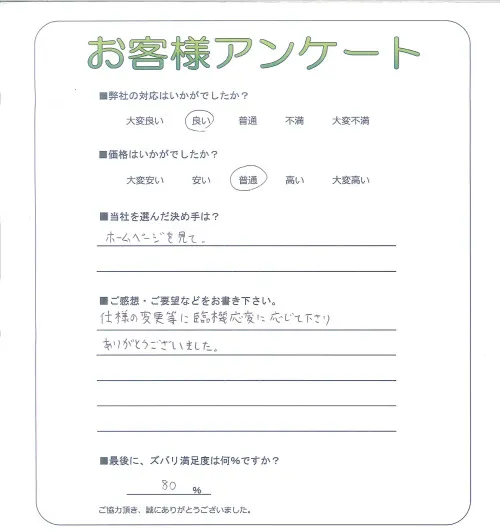 お客様アンケート
■弊社の対応はいかがでしたか？
大変良い 良い 普通 不満 大変不満
■価格はいかがでしたか？
大変安い 安い 普通 高い 大変高い
■当社を選んだ決め手は？
ホームページを見て。
■ご感想・ご要望などをお書き下さい。
仕様の変更等に臨機応変に応じて下さり
ありがとうございました。
■最後に、ズバリ満足度は何％ですか？
80 %
ご協力頂き、誠にありがとうございました。